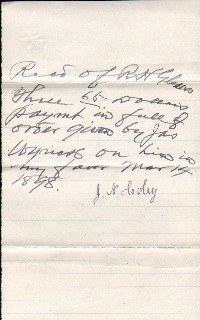 Recd of R H
Three 55 Dollars
paymt in full of
order given by Jas
on him in
my favor Mar 14
1898.
J. N.